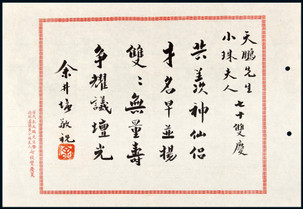 天鵬先生
小珠夫人 七十雙慶
共羨神仙侶
才名早並揚
雙〻無量壽
爭耀議壇光
余井塘敬祝